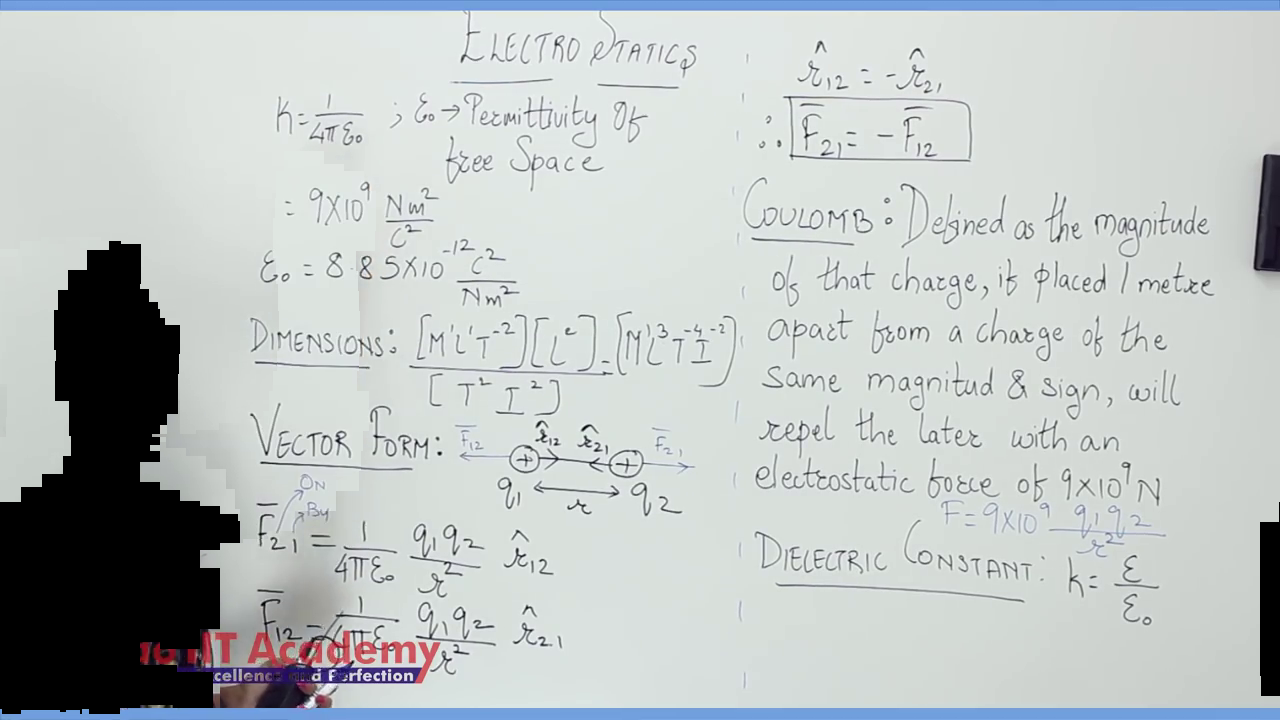 ELECTROSTATICS
K = 1/4πε₀ ; ε₀ → Permittivity Of
free Space
= 9×10⁹ Nm²/C²
ε₀ = 8.85×10⁻¹² C²/Nm²
DIMENSIONS: [M¹L¹T⁻²][L²]/[T² I²] = [M¹L³T⁻⁴I⁻²]
VECTOR FORM:
F̅₁₂ r̂₁₂ r̂₂₁ F̅₂₁
+ +
q₁ r q₂
ON
By
F̅₂₁ = 1/4πε₀ q₁q₂/r² r̂₁₂
F̅₁₂ = 1/4πε₀ q₁q₂/r² r̂₂₁
r̂₁₂ = -r̂₂₁
∴ F̅₂₁ = -F̅₁₂
COULOMB: Defined as the magnitude
of that charge, if placed 1 metre
apart from a charge of the
same magnitud & sign, will
repel the later with an
electrostatic force of 9×10⁹ N
F = 9×10⁹ q₁q₂/r²
DIELECTRIC CONSTANT: k = ε/ε₀
Academy
and Perfection